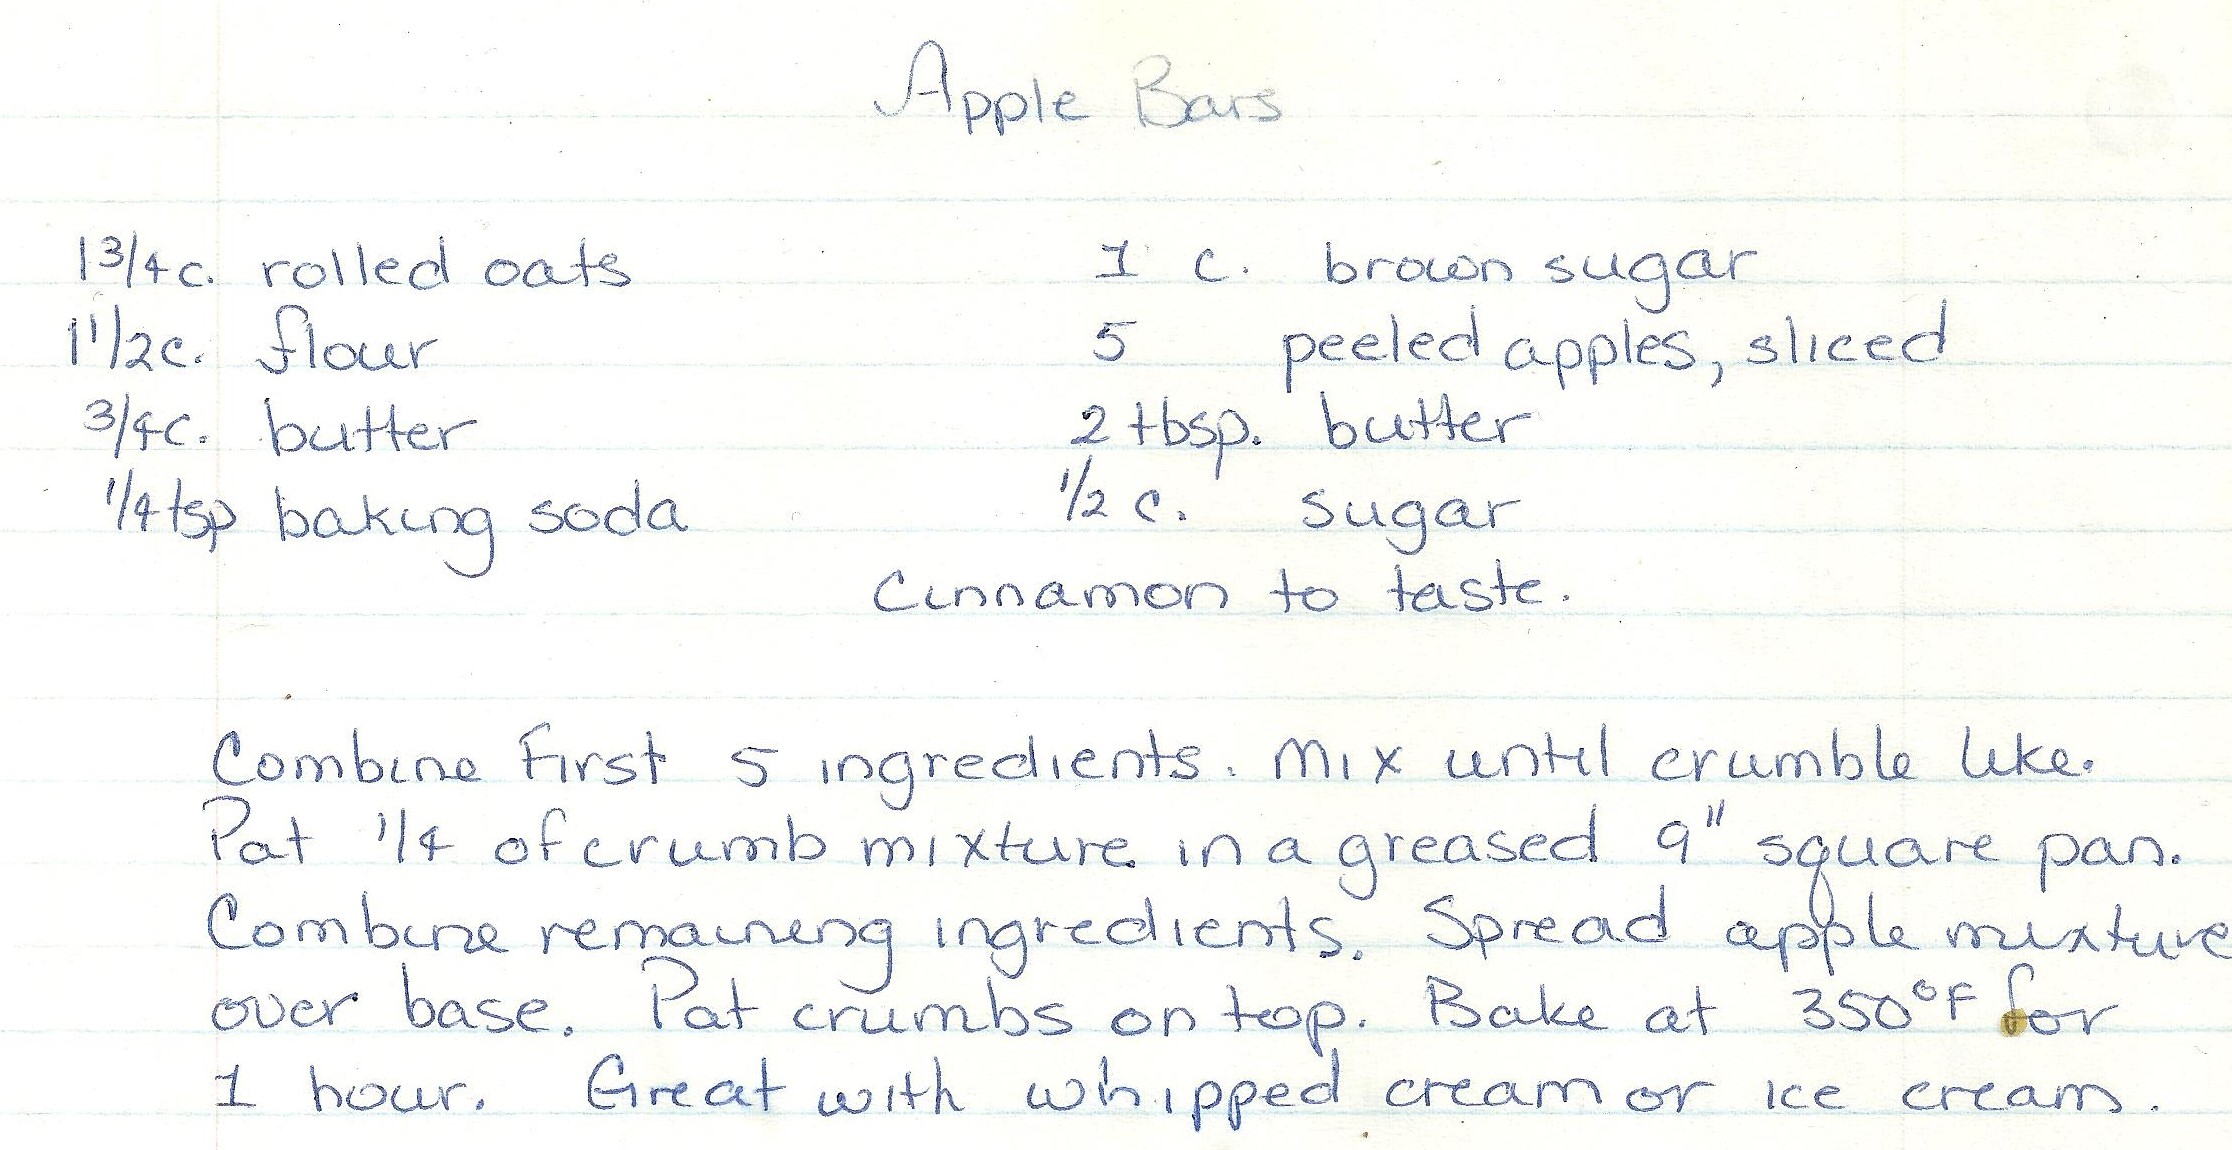 Apple Bars
1 3/4 c. rolled oats
1 1/2 c. flour
3/4 c. butter
1/4 tsp baking soda
1 c. brown sugar
5 peeled apples, sliced
2 tbsp. butter
1/2 c. sugar
Cinnamon to taste.
Combine First 5 ingredients. Mix until crumble like.
Pat 1/4 of crumb mixture in a greased 9" square pan.
Combine remaining ingredients. Spread apple mixture
over base. Pat crumbs on top. Bake at 350°F for
1 hour. Great with whipped cream or ice cream.